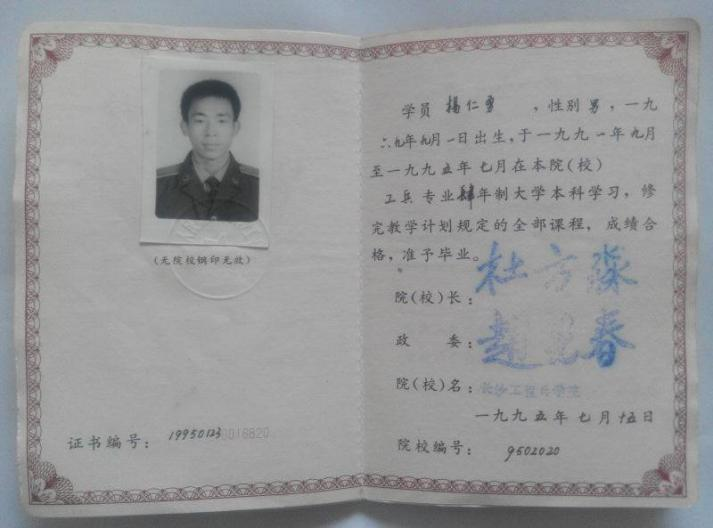 (无院校钢印无效)
证书编号: 19950123 0016820
学员 杨仁勇 ,性别男,一九
六九年九月一日出生,于一九九一年九月
至一九九五年七月在本院(校)
工兵 专业肆年制大学本科学习,修
完教学计划规定的全部课程,成绩合
格,准予毕业。
院(校)长: 杜方淼
政 委: 春
院(校)名: 长沙工程兵学院
一九九五年七月十五日
院校编号: 9502020